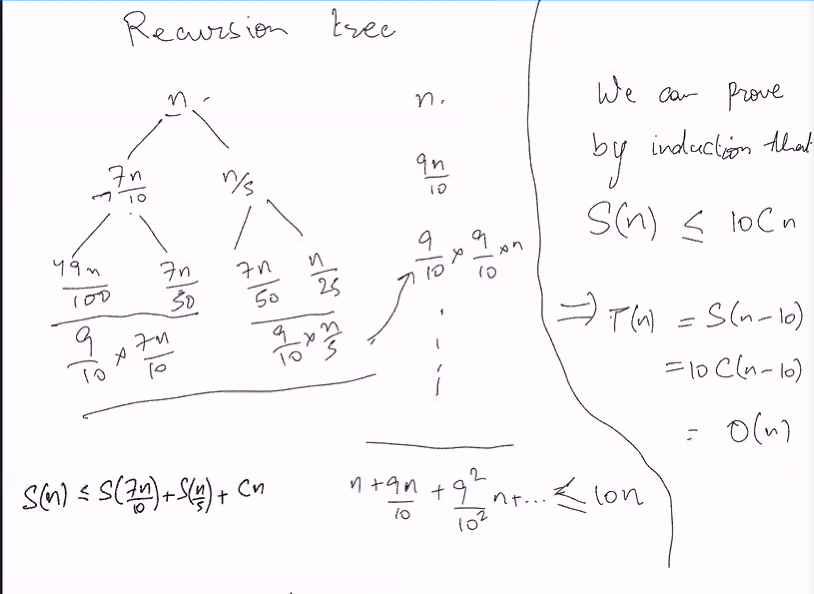 Recursion tree
n
n.
7n/10 n/5
9n/10
49n/100 7n/50 7n/50 n/25
9/10 × 9/10 × n
9/10 × 7n/10 9/10 × n/5
S(n) ≤ S(7n/10) + S(n/5) + Cn
n + 9n/10 + 9²/10² n + ... ≤ 10n
We can prove
by induction that
S(n) ≤ 10Cn
⇒ T(n) = S(n-10)
= 10C(n-10)
= O(n)